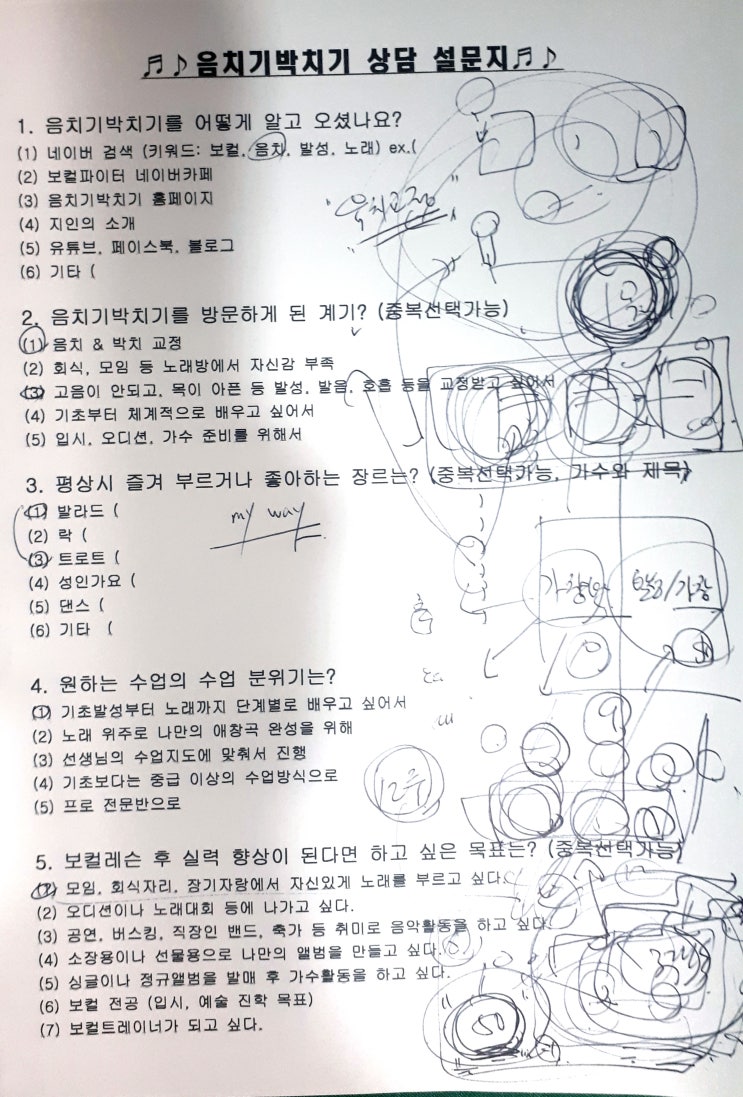 ♬♪음치기박치기 상담 설문지♬♪
1. 음치기박치기를 어떻게 알고 오셨나요?
(1) 네이버 검색 (키워드: 보컬, 음치, 발성, 노래) ex.(
(2) 보컬파이터 네이버카페
(3) 음치기박치기 홈페이지
(4) 지인의 소개
(5) 유튜브, 페이스북, 블로그
(6) 기타 (
"음치교정"
2. 음치기박치기를 방문하게 된 계기? (중복선택가능)
(1) 음치 & 박치 교정
(2) 회식, 모임 등 노래방에서 자신감 부족
(3) 고음이 안되고, 목이 아픈 등 발성, 발음, 호흡 등을 교정받고 싶어서
(4) 기초부터 체계적으로 배우고 싶어서
(5) 입시, 오디션, 가수 준비를 위해서
3. 평상시 즐겨 부르거나 좋아하는 장르는? (중복선택가능, 가수와 제목)
(1) 발라드 (
(2) 락 (
(3) 트로트 (
(4) 성인가요 (
(5) 댄스 (
(6) 기타 (
my way
4. 원하는 수업의 수업 분위기는?
(1) 기초발성부터 노래까지 단계별로 배우고 싶어서
(2) 노래 위주로 나만의 애창곡 완성을 위해
(3) 선생님의 수업지도에 맞춰서 진행
(4) 기초보다는 중급 이상의 수업방식으로
(5) 프로 전문반으로
12주
5. 보컬레슨 후 실력 향상이 된다면 하고 싶은 목표는? (중복선택가능)
(1) 모임, 회식자리, 장기자랑에서 자신있게 노래를 부르고 싶다.
(2) 오디션이나 노래대회 등에 나가고 싶다.
(3) 공연, 버스킹, 직장인 밴드, 축가 등 취미로 음악활동을 하고 싶다.
(4) 소장용이나 선물용으로 나만의 앨범을 만들고 싶다.
(5) 싱글이나 정규앨범을 발매 후 가수활동을 하고 싶다.
(6) 보컬 전공 (입시, 예술 진학 목표)
(7) 보컬트레이너가 되고 싶다.
50